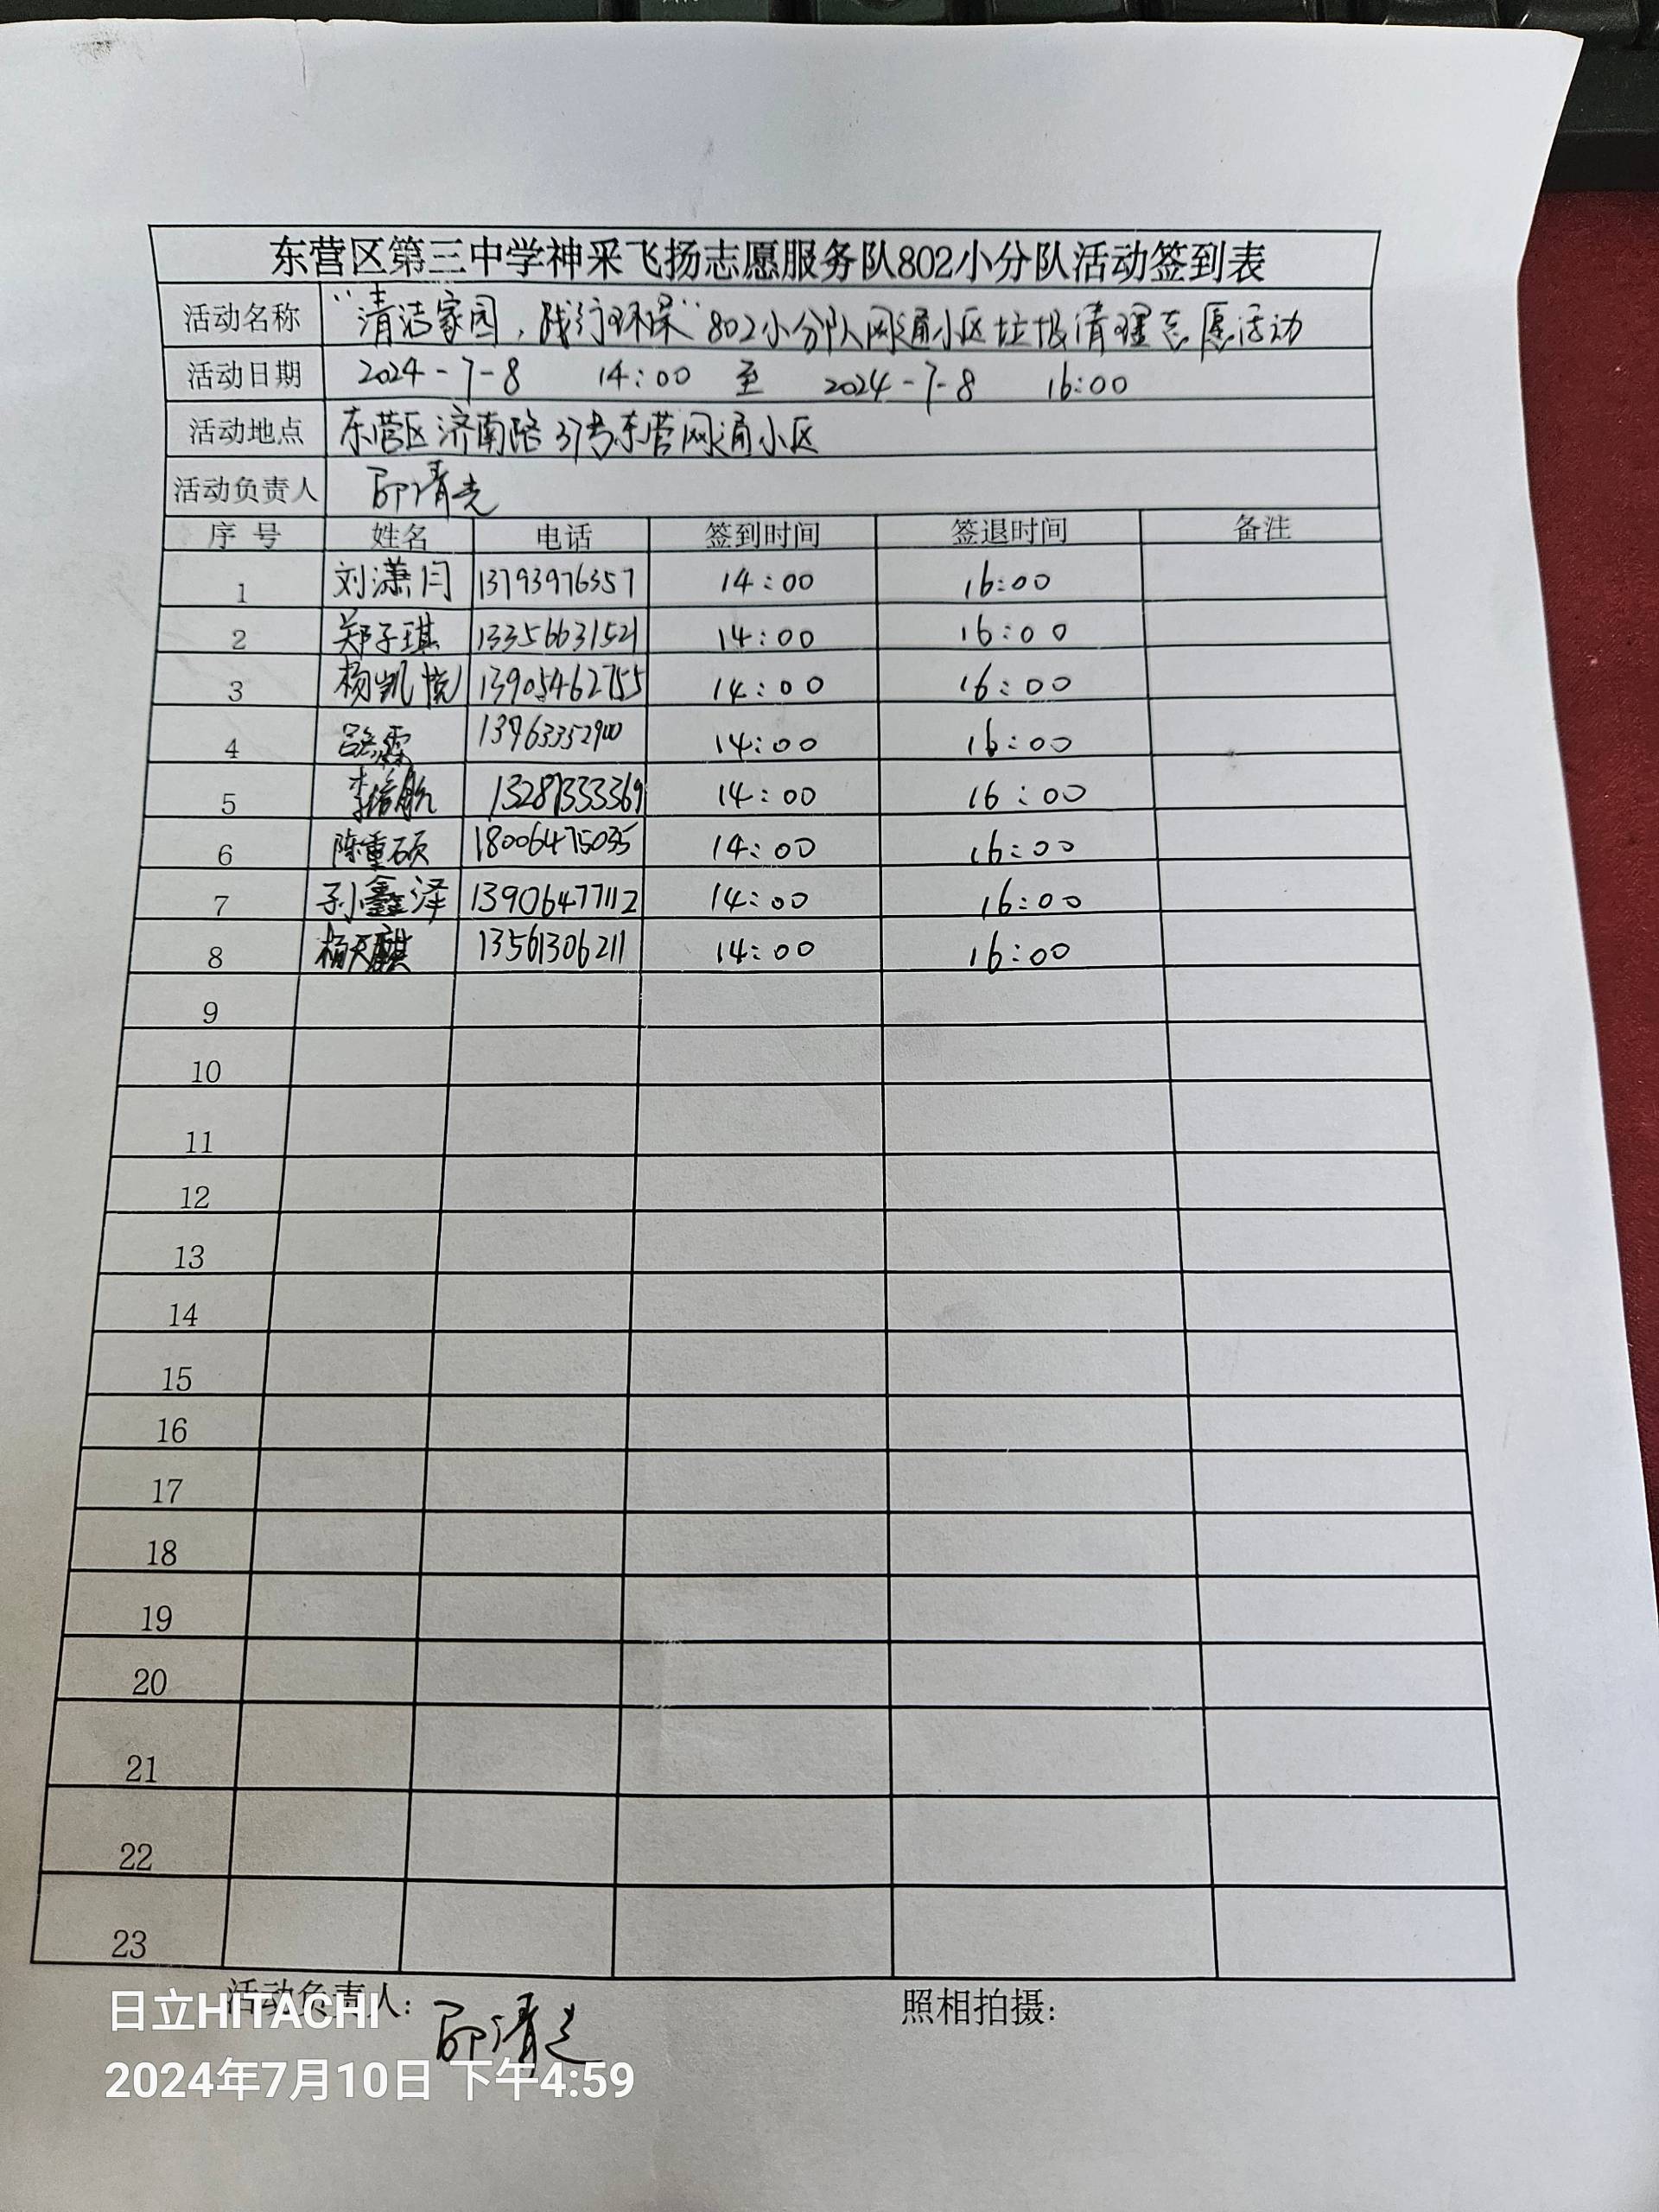 东营区第三中学神采飞扬志愿服务队802小分队活动签到表
活动名称 “清洁家园，践行环保”802小分队网通小区垃圾清理志愿活动
活动日期 2024-7-8 14:00 至 2024-7-8 16:00
活动地点 东营区济南路37号东营网通小区
活动负责人 清
序 号 姓名 电话 签到时间 签退时间 备注
1 刘潇月 13793976357 14:00 16:00
2 郑子琪 13356631521 14:00 16:00
3 杨凯悦 13905462755 14:00 16:00
4 霖 14:00 16:00
5 李 航 14:00 16:00
6 陈重硕 18006475035 14:00 16:00
7 孙鑫泽 13906477112 14:00 16:00
8 杨天麒 13561306211 14:00 16:00
9
10
11
12
13
14
15
16
17
18
19
20
21
22
23
活动负责人: 清 照相拍摄:
日立HITACHI
2024年7月10日 下午4:59